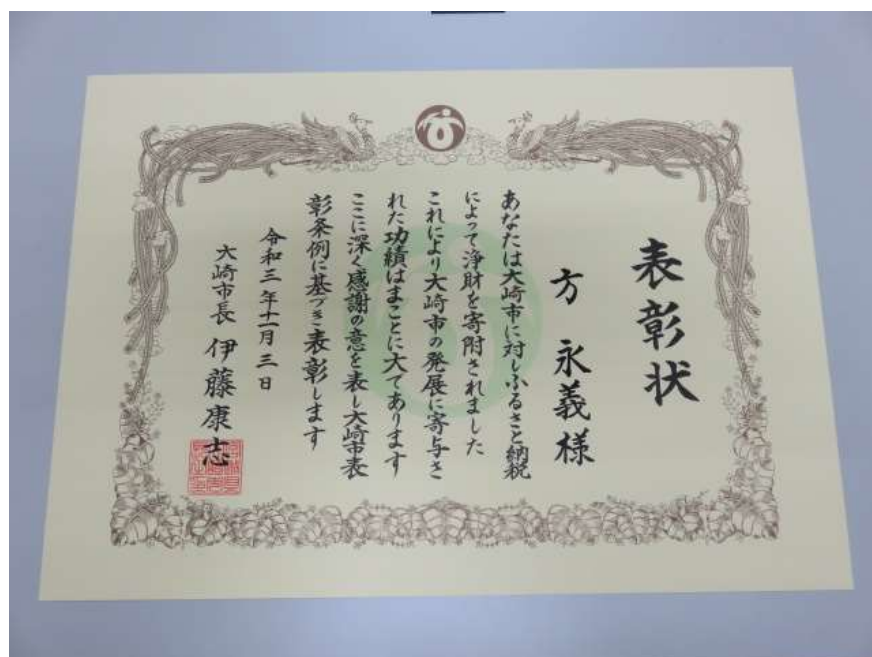 表彰状
方 永義様
あなたは大崎市に対しふるさと納税
によって浄財を寄附されました
これにより大崎市の発展に寄与さ
れた功績はまことに大であります
ここに深く感謝の意を表し大崎市表
彰条例に基づき表彰します
令和三年十一月三日
大崎市長 伊藤康志